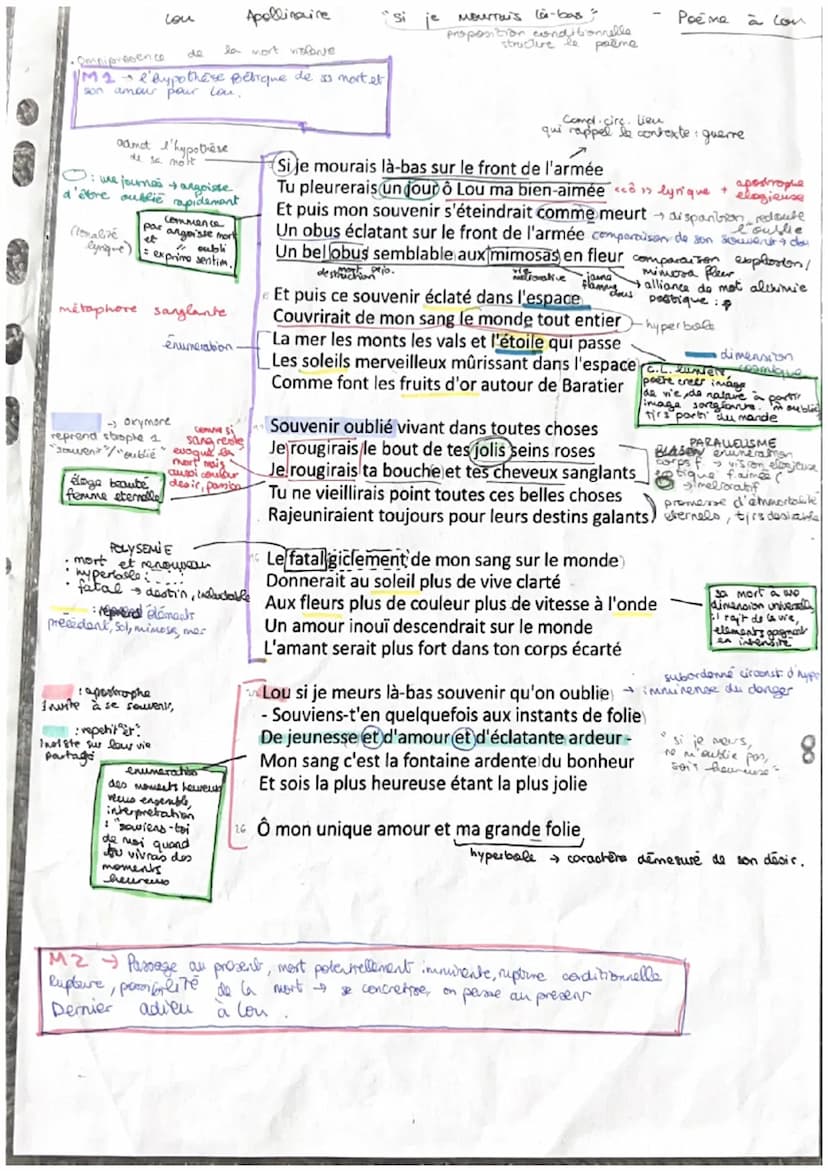 Lou Apollinaire "Si je mourrais là-bas" - Poème à Lou
proposition conditionnelle
structure le poème
Omniprésence de la mort violente
M1 → l'hypothèse poétique de sa mort et
son amour pour Lou.
Compl. circ. lieu
qui rappel le contexte : guerre
admet l'hypothèse
de sa mort
Si je mourais là-bas sur le front de l'armée
: une journée → angoisse
d'être oublié rapidement
Tu pleurerais un jour ô Lou ma bien-aimée «ô» lyrique + apostrophe
élogieuse
Et puis mon souvenir s'éteindrait comme meurt → disparition, redoute
l'oublie
commence
par angoisse mort
et " oubli
= exprime sentim.
(tonalité
lyrique)
Un obus éclatant sur le front de l'armée comparaison de son souvenir →
Un bel obus semblable aux mimosas en fleur comparaison explosion/
mimosa fleur
mort péjo.
destruction
vie
méliorative
jaune
flammes
→ alliance de mot alchimie
poétique :
Et puis ce souvenir éclaté dans l'espace
métaphore sanglante
Couvrirait de mon sang le monde tout entier - hyperbole
énumération
La mer les monts les vals et l'étoile qui passe
dimension
cosmique
Les soleils merveilleux mûrissant dans l'espace
Comme font les fruits d'or autour de Baratier
C.L. lumière
poète créer image
de vie, de nature à partir
image sanglante. m oublié
tjrs parti du monde
→ oxymore
reprend strophe 1
"souvenir"/"oublié"
Souvenir oublié vivant dans toutes choses
comme si
sang reste
évoque la
mort mais
aussi couleur
désir, passion
Je rougirais le bout de tes jolis seins roses
Je rougirais ta bouche et tes cheveux sanglants
PARALLELISME
BLASON énumération
corps f. → vision élogieuse
→ mélioratif
éloge beauté
femme eternelle
Tu ne vieillirais point toutes ces belles choses
Rajeuniraient toujours pour leurs destins galants
promesse d'immortalité
éternels, tjrs désirable
POLYSEMIE
: mort et renouveau
hyperbole :
fatal → destin, inéluctable
Le fatal giclement de mon sang sur le monde
Donnerait au soleil plus de vive clarté
Aux fleurs plus de couleur plus de vitesse à l'onde
Un amour inouï descendrait sur le monde
L'amant serait plus fort dans ton corps écarté
: reprend éléments
précédent, sol, mimosa, mer
sa mort a une
dimension universelle,
il rajt de la vie,
éléments gagnent
en intensité
: apostrophe
Invite à se souvenir,
Lou si je meurs là-bas souvenir qu'on oublie
subordonné circonst d'hypo
→ imminense du danger
- Souviens-t'en quelquefois aux instants de folie
: repetit° "et" :
Insiste sur leur vie
partagé
De jeunesse et d'amour et d'éclatante ardeur -
Mon sang c'est la fontaine ardente du bonheur
Et sois la plus heureuse étant la plus jolie
"si je meurs,
ne m'oublie pas,
sois heureuse"
8
énumération
des moments heureux
vécus ensemble,
interprétation
: "souviens-toi
de moi quand
tu vivras des
moments
heureux
26 Ô mon unique amour et ma grande folie
hyperbole → caractère démesuré de son désir.
M2 → Passage au présent, mort potentiellement imminente, rupture conditionnelle
Rupture, possibilité de la mort → se concretise, on passe au présent
Dernier adieu à Lou.